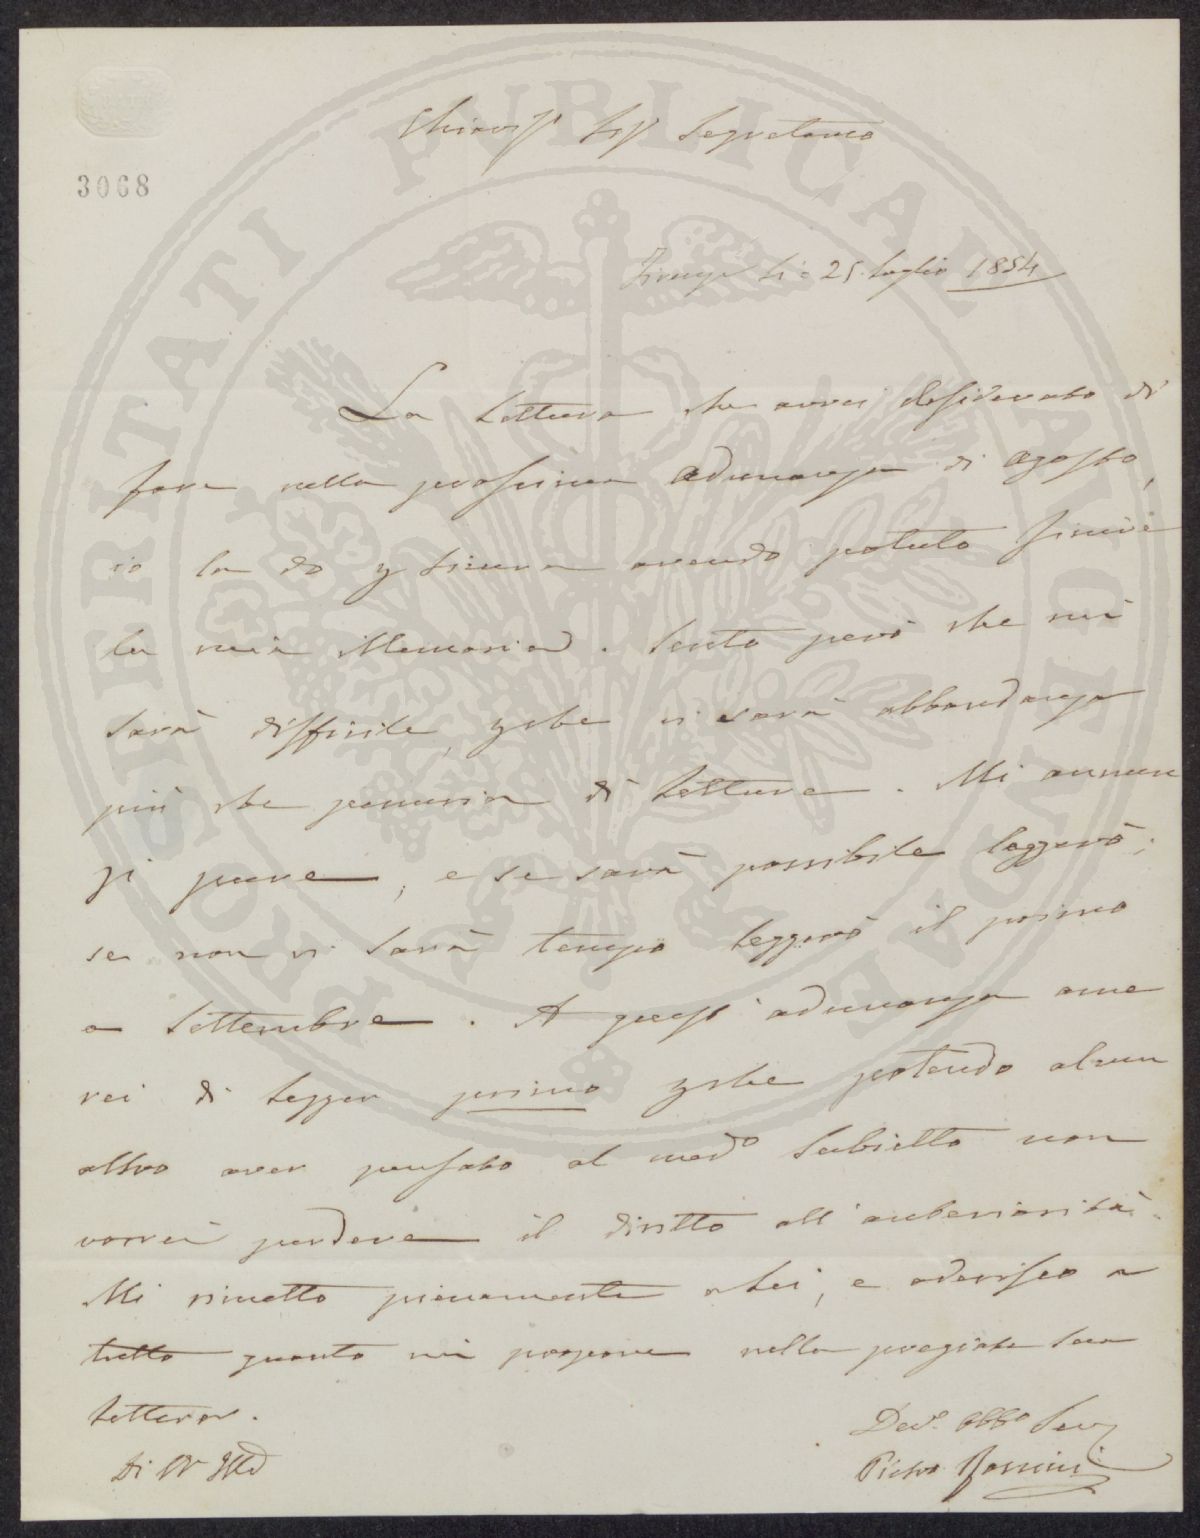 3068
Chiariss. Sig. Segretario
Firenze li 25. Luglio 1854
La Lettura che avrei desiderato di
fare nella prossima adunanza di Agosto,
io la do p sicura avendo potuto finire
la mia Memoria. Sento però che mi
sarà difficile, pche vi sarà abbondanza
più che penuria di Letture. Mi annun
zi pure, e se sarà possibile leggerò;
se non vi sarà tempo leggerò il primo
a Settembre. A quest'adunanza ame
rei di legger primo pche potendo alcun
altro aver pensato al medo Subietto non
vorrei perdere il diritto all'anteriorità.
Mi rimetto pienamente a Lei, e aderisco a
tutto quanto mi propone nella pregiata sua
Lettera.
Di VS Illa
Devo. Obbo Serv
Pietro
PROSPERITATI PUBLICAE AUGENDAE